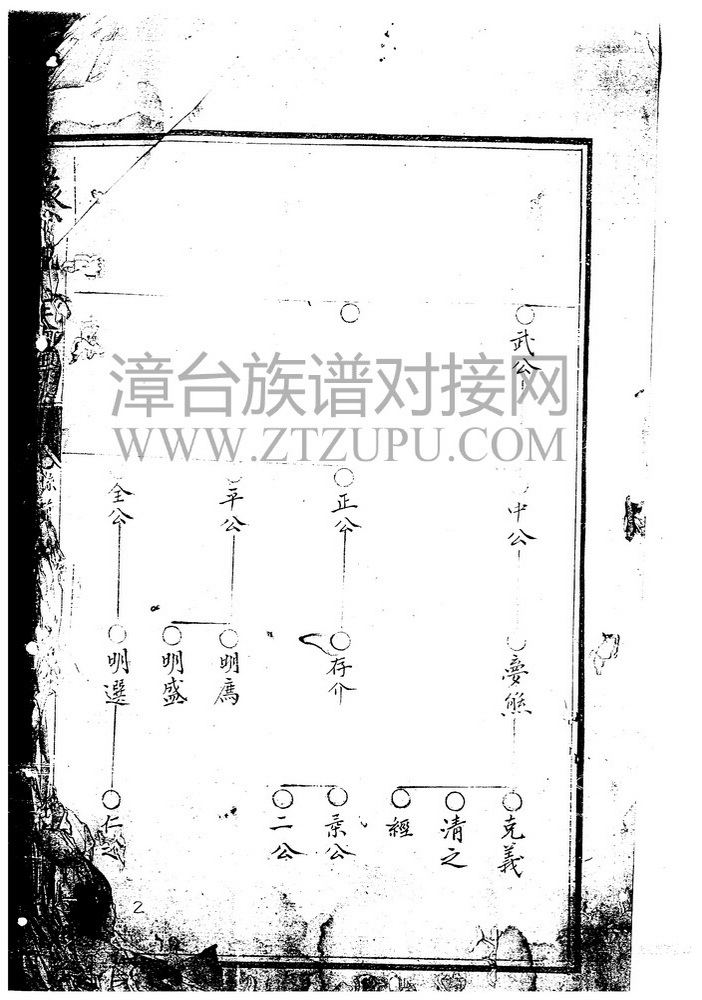 武公
漳台族谱对接网
WWW.ZTZUPU.COM
中公
正公
平公
全公
夢熊
存介
明廌
明盛
明選
克義
清之
經
景公
二公
仁之
2